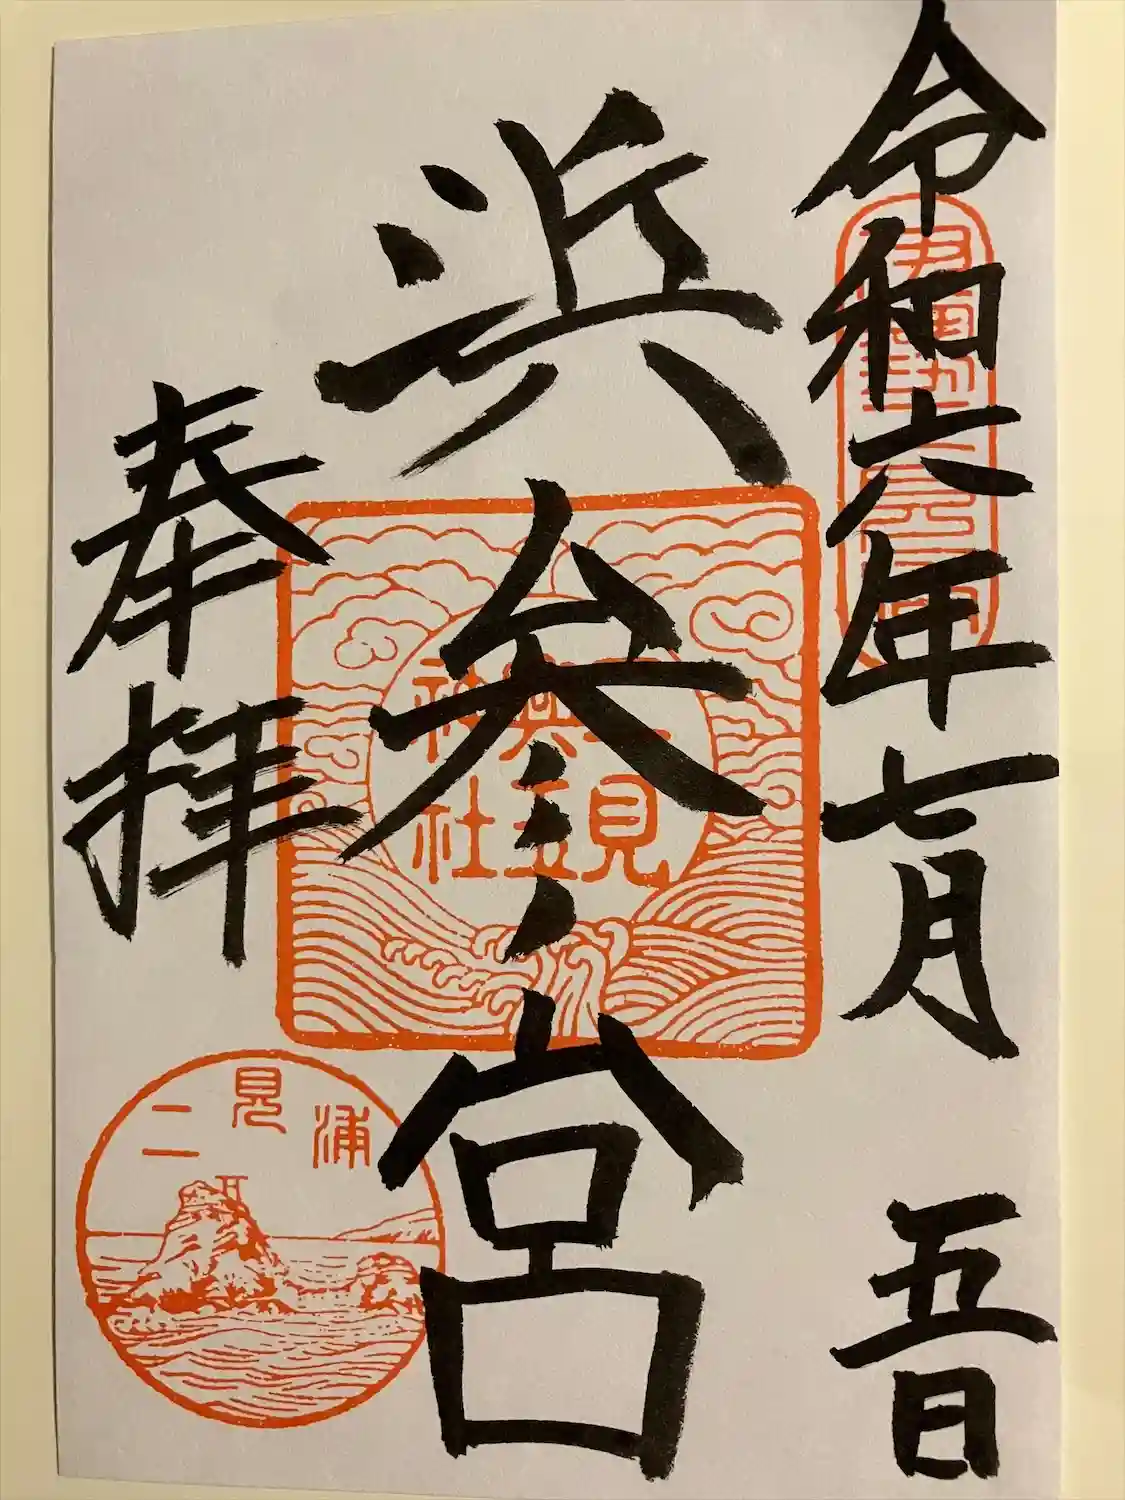 令和六年七月五日
浜参宮
奉拝
二見
興玉
神社
二見浦